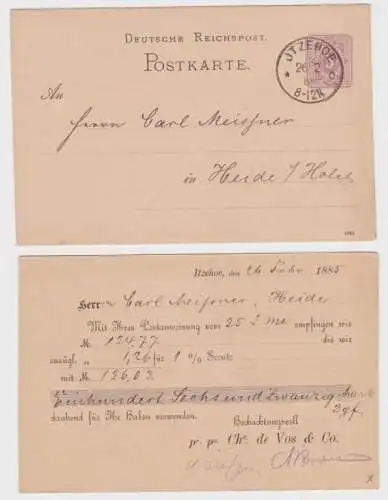 DEUTSCHE REICHSPOST.
POSTKARTE.
ITZEHOE
26 2
8-12V.
An
Herrn Carl Meissner
in Heide / Holst
Itzehoe, den 26 Febr 1885
Herrn Carl Meissner, Heide
Mit Ihrer Postanweisung vom 25 d. Mts empfingen wir
M. 124.77 die wir
zuzügl. " 1,26 für 1 % Sconto
mit M. 126,03.
Einhundert Sechsundzwanzig Mark
3 Pf.
dankend für Ihr Haben verwenden.
Hochachtungsvoll
pr. pr. Chs. de Vos & Co.